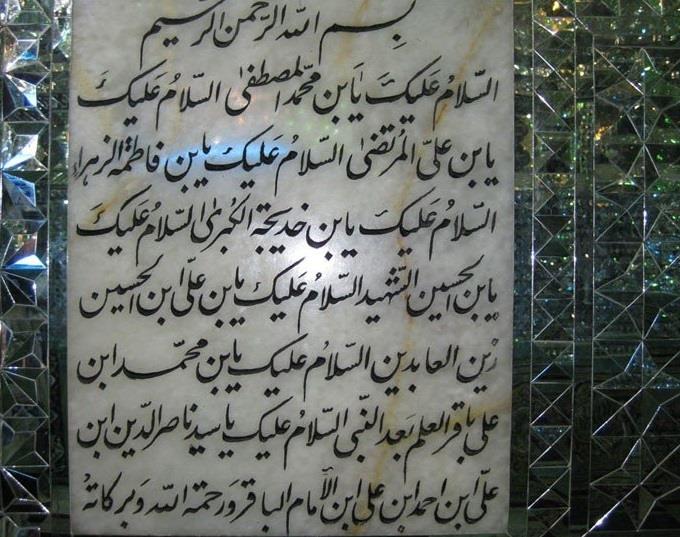 بسم الله الرحمن الرحیم
السّلامُ عَلیکَ یَابن محّمد المصطفیٰ السّلامُ عَلیکَ
یابن علیّ المُرتضیٰ السّلامُ عَلیکَ یابن فاطمة الزهراء
السّلامُ عَلیکَ یابن خدیجة الکُبریٰ السّلامُ عَلیکَ
یابن الحسین الشّهید السّلامُ عَلیکَ یابن علّی ابن الحسین
زین العابدین السّلامُ علیکَ یابن محمّد ابن
علی باقر العلم بَعد النّبی السّلامُ علیکَ یا سید ناصر الدّین ابن
علّی ابن احمد ابن علی ابن الأمام الباقر وَرحمة الله وَبرکاتهُ